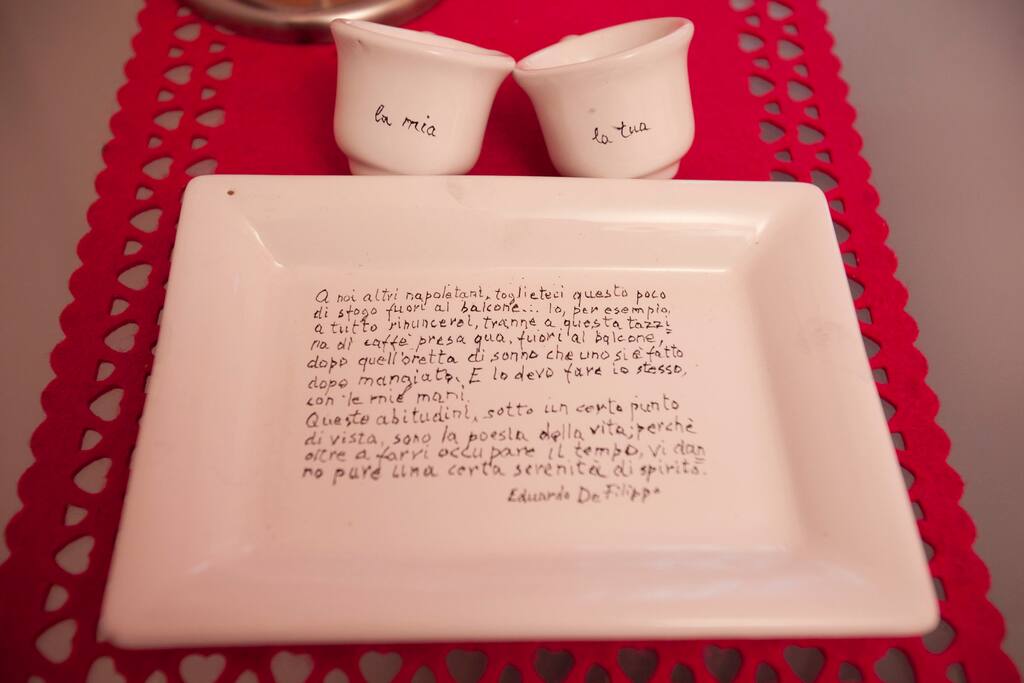 la mia
la tua
A noi altri napoletani, toglieteci questo poco
di sfogo fuori al balcone... Io, per esempio,
a tutto rinuncerei, tranne a questa tazzi
na di caffè presa qua, fuori al balcone,
dopo quell'oretta di sonno che uno si è fatto
dopo mangiato. E lo devo fare io stesso,
con le mie mani.
Queste abitudini, sotto un certo punto
di vista, sono la poesia della vita; perchè
oltre a farvi occupare il tempo, vi dan
no pure una certa serenità di spirito.
Eduardo De Filippo